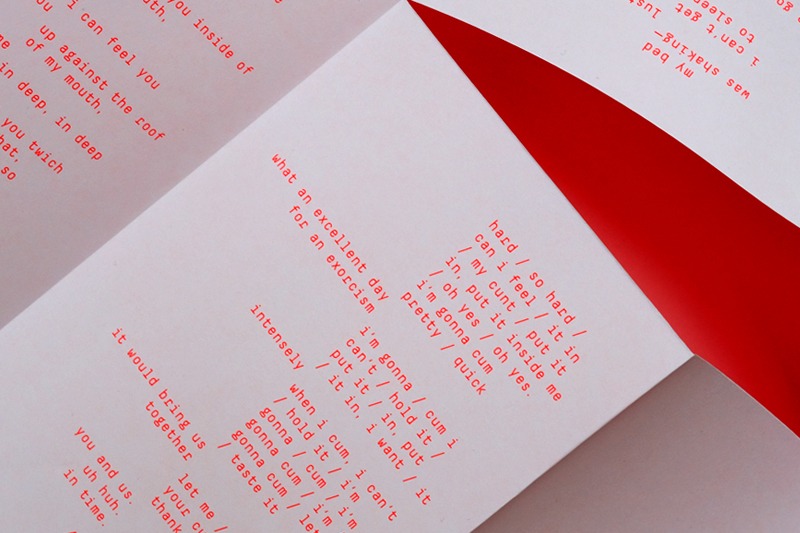 you inside of
i can feel you
up against the roof
of my mouth,
in deep, in deep
you twich
so
my bed
was shaking—
just
i can't get
to sleep
what an excellent day
for an exorcism
hard / so hard /
can i feel / it in
/ my cunt / put it
in, put it inside me
/ oh yes / oh yes.
i'm gonna cum
pretty / quick
intensely
i'm gonna / cum i
can't / hold it /
put it / in, put
/ it in, i want / it
it would bring us
together
when i cum, i can't
/ hold it / i'm
gonna / cum / i'm
gonna cum / i'm
gonna cum / i'm
/ taste it / let
you and us.
uh huh.
in time.
let me /
your
thank